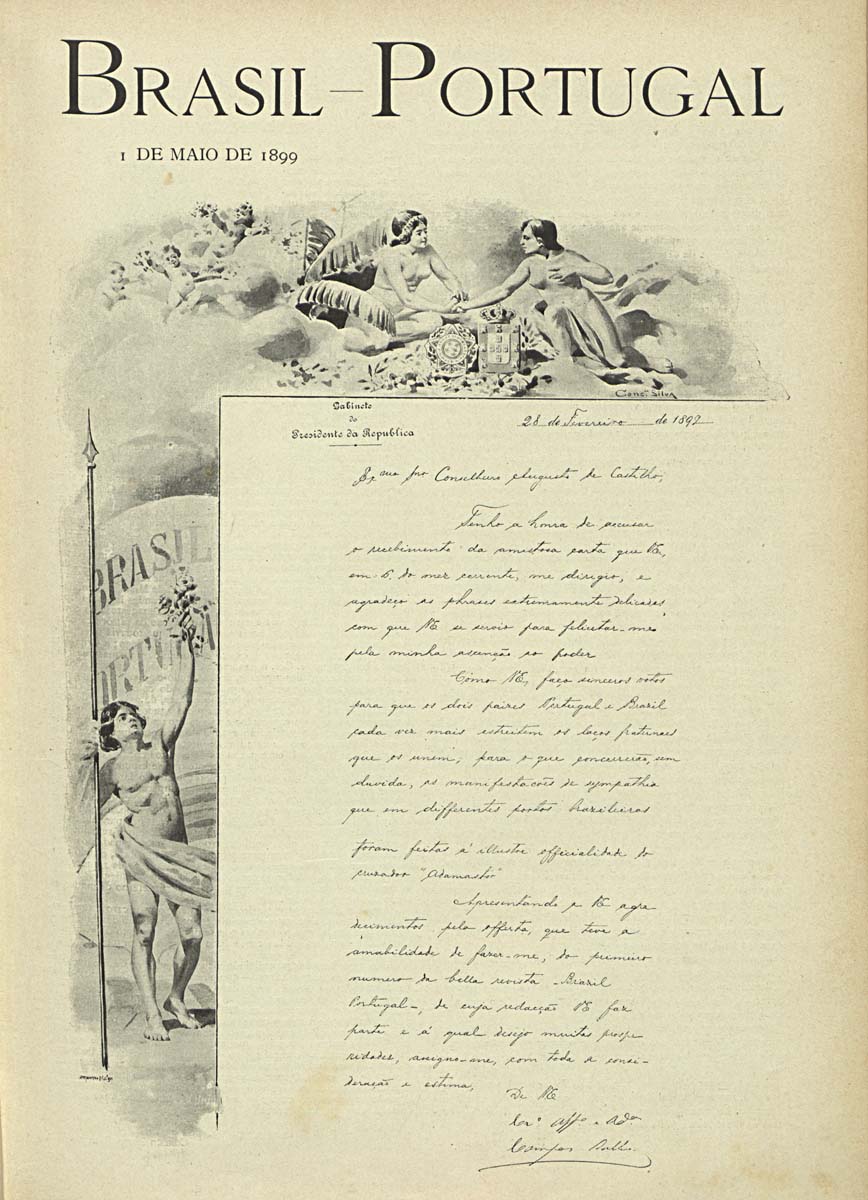 BRASIL–PORTUGAL
1 DE MAIO DE 1899
Conc. Silva
Gabinete
do
Presidente da Republica
28 de Fevereiro de 1899
Exmo Snr Conselheiro Augusto de Castilho,
Tenho a honra de accusar
o recebimento da amistosa carta que VE,
em 6 do mez corrente, me dirigio, e
agradeço as phrases extremamente delicadas
com que VE se servio para felicitar-me
pela minha ascenção ao poder
Como VE, faço sinceros votos
para que os dois paizes Portugal e Brazil
cada vez mais estreitem os laços fraternaes
que os unem, para o que concorrerão, sem
duvida, as manifestações de sympathia
que em differentes portos Brazileiros
foram feitas á illustre officialidade do
cruzador "Adamastor"
Apresentando a VE agra
decimentos pela offerta, que teve a
amabilidade de fazer-me, do primeiro
numero da bella revista -Brazil
Portugal-, de cuja redacção VE faz
parte e á qual desejo muitas prospe
ridades, assigno-me, com toda a consi-
deração e estima,
De VE
Cr.º Affº e Adºr
Campos Salles
BRASIL
PORTUGAL